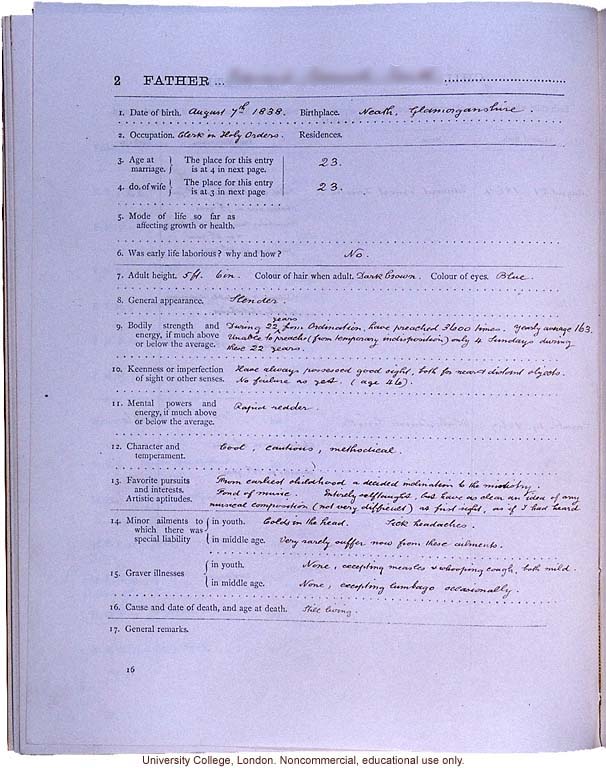 2 FATHER ...
1. Date of birth. August 7th 1838. Birthplace. Neath, Glamorganshire.
2. Occupation. Clerk in Holy Orders. Residences.
3. Age at marriage. } The place for this entry is at 4 in next page. 23.
4. do. of wife } The place for this entry is at 3 in next page 23.
5. Mode of life so far as affecting growth or health.
6. Was early life laborious? why and how? No.
7. Adult height. 5 ft. 6 in. Colour of hair when adult. Dark brown. Colour of eyes. Blue.
8. General appearance. Slender.
9. Bodily strength and energy, if much above or below the average. During 22 years from Ordination, have preached 3600 times. yearly average 163.
Unable to preach (from temporary indisposition) only 4 Sundays during
these 22 years.
10. Keenness or imperfection of sight or other senses. Have always possessed good sight, both for near & distant objects.
No failure as yet. (age 46).
11. Mental powers and energy, if much above or below the average. Rapid reader.
12. Character and temperament. Cool, cautious, methodical.
13. Favorite pursuits and interests. Artistic aptitudes. From earliest childhood a decided inclination to the ministry.
Fond of music. Entirely self taught, but have as clear an idea of any
musical composition (not very difficult) at first sight, as if I had heard
14. Minor ailments to which there was special liability { in youth. Colds in the head. Sick headaches.
{ in middle age. Very rarely suffer now from these ailments.
15. Graver illnesses { in youth. None, excepting measles & whooping cough, both mild.
{ in middle age. None, excepting lumbago occasionally.
16. Cause and date of death, and age at death. Still living.
17. General remarks.
16
University College, London. Noncommercial, educational use only.